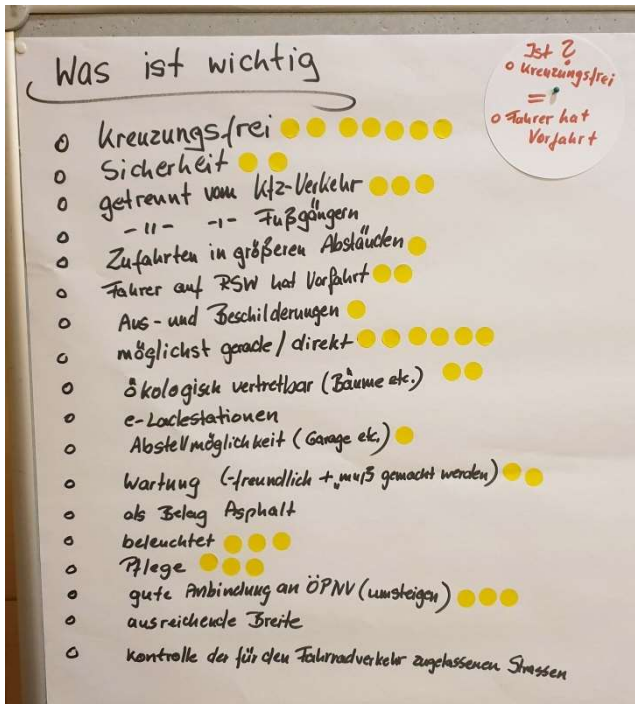 Was ist wichtig
Ist ?
o Kreuzungsfrei
=
o Fahrer hat
Vorfahrt
o Kreuzungsfrei
o Sicherheit
o getrennt vom Kfz-Verkehr
o -"- -"- Fußgängern
o Zufahrten in größeren Abständen
o Fahrer auf RSW hat Vorfahrt
o Aus- und Beschilderungen
o möglichst gerade / direkt
o ökologisch vertretbar (Bäume etc.)
o e-Ladestationen
o Abstellmöglichkeit (Garage etc.)
o Wartung (-freundlich + „muß gemacht werden)
o als Belag Asphalt
o beleuchtet
o Pflege
o gute Anbindung an ÖPNV (umsteigen)
o ausreichende Breite
o Kontrolle der für den Fahrradverkehr zugelassenen Strassen